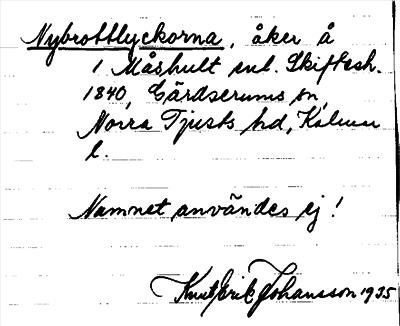 Nybrottlyckorna, åker å
1 Måshult enl. Skiftesh.
1840, Gärdserums sn,
Norra Tjusts hd, Kalmar
l.
Namnet användes ej!
Knut Erik Johansson 1935